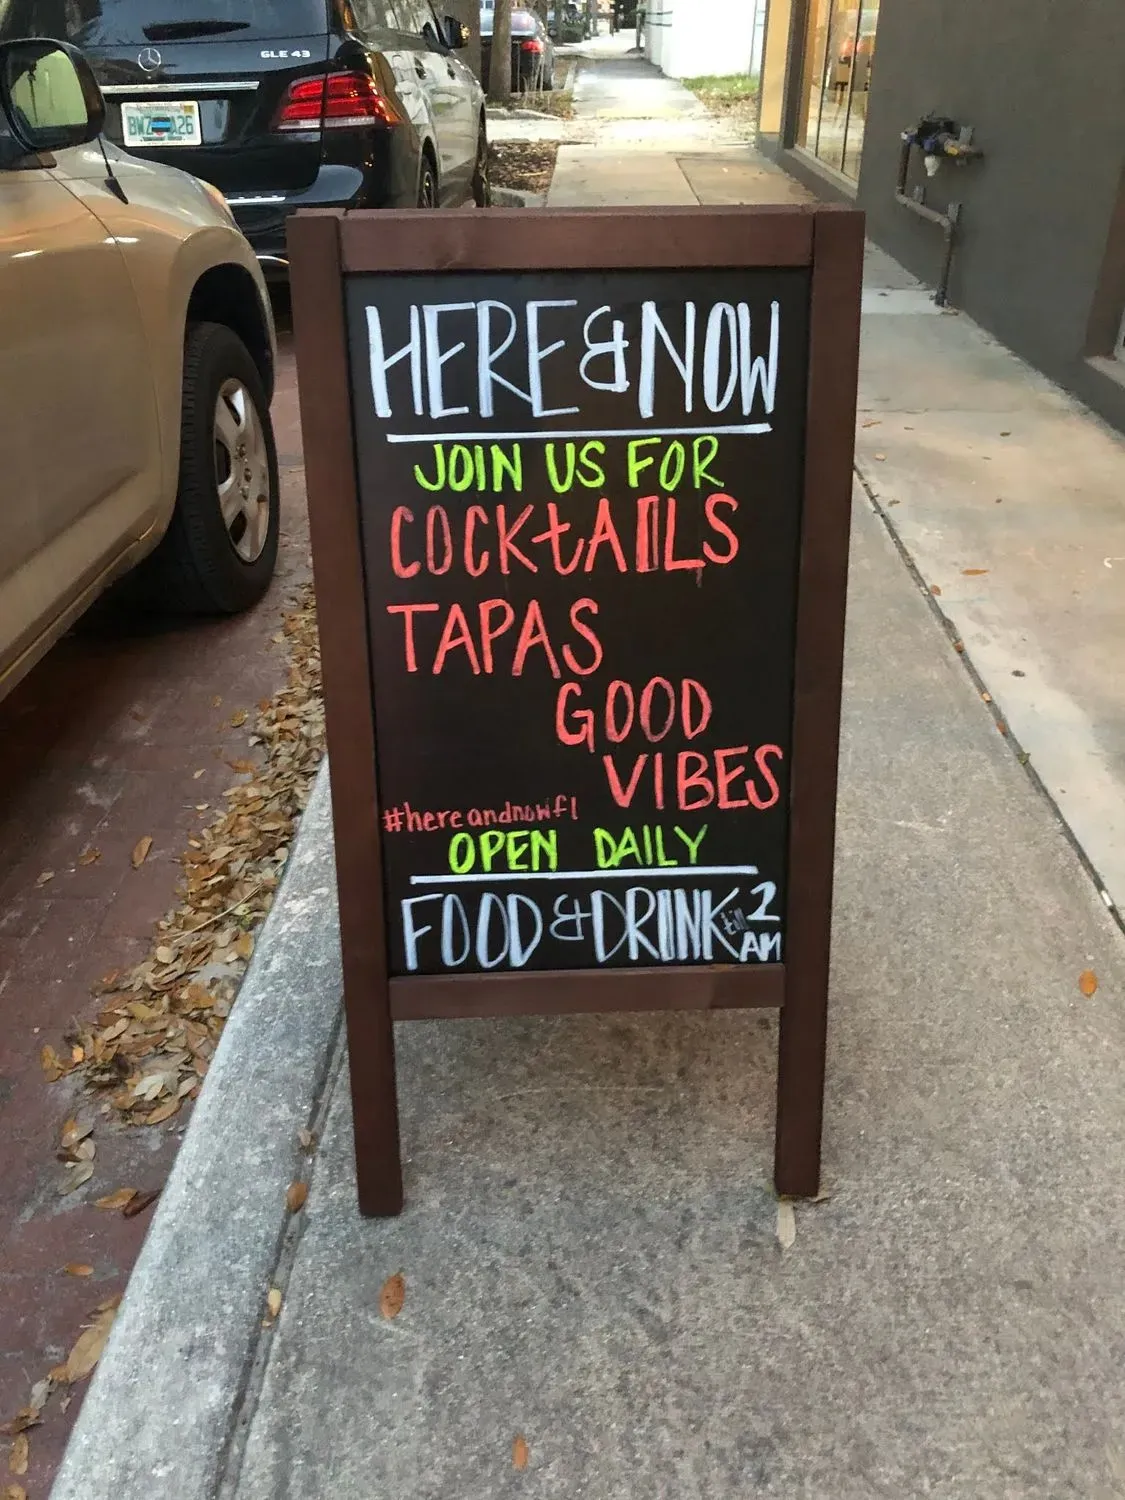 GLE 43
BWZ A26
HERE & NOW
JOIN US FOR
COCKtAILS
TAPAS
GOOD
VIBES
#hereandnowfl
OPEN DAILY
FOOD & DRINK till 2 AM